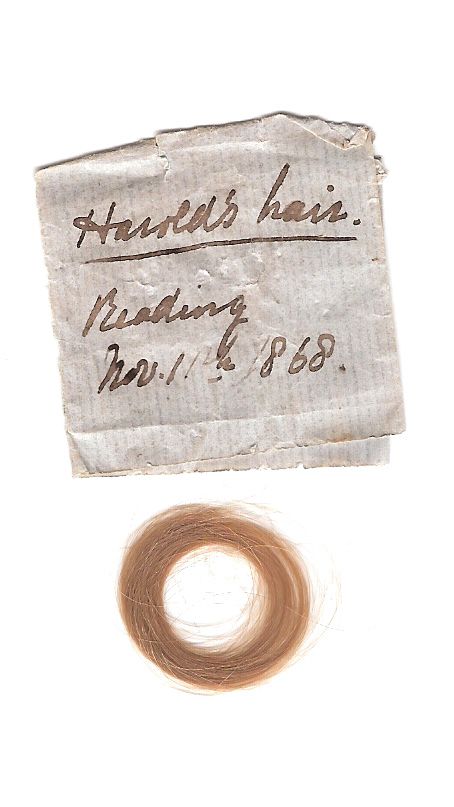 Harold's hair.
Reading
Nov. 11th 1868.